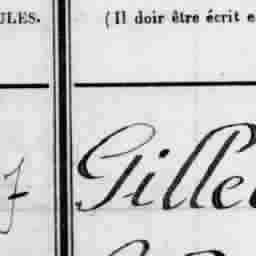 ULES.
(Il doir être écrit e
Gillet